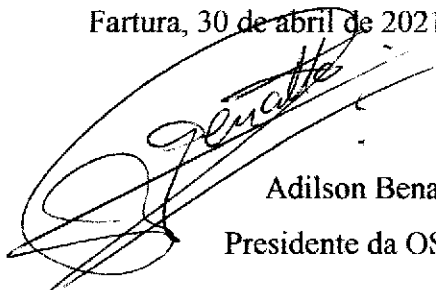 Fartura, 30 de abril de 2021
Adilson Bena
Presidente da OS